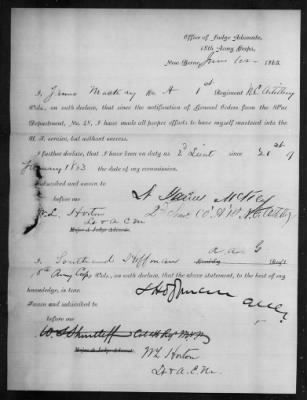 Office of Judge Advocate,
18th Army Corps,
New Berne, June 1863
I, James Mackey Co A 1st Regiment N.C. Artillery
Vols., on oath declare, that since the notification of General Orders from the War
Department, No. 48, I have made all proper efforts to have myself mustered into the
U. S. service, but without success.
I further declare, that I have been on duty as 2d Lieut since 20th of
February 1863 the date of my commission.
Subscribed and sworn to
before me
James Mackey
W.L. Horton
2d Lieut Co. A 1st N.C. Artillery
Lt & A.C.M.
Major & Judge Advocate.
I, Southard Hoffman A A G
18th Army Corps Vols., on oath declare, that the above statement, to the best of my
knowledge, is true.
Sworn and subscribed to
before me
S Hoffman A.A.G.
Major & Judge Advocate.
W L Horton
Lt & A.C.M.